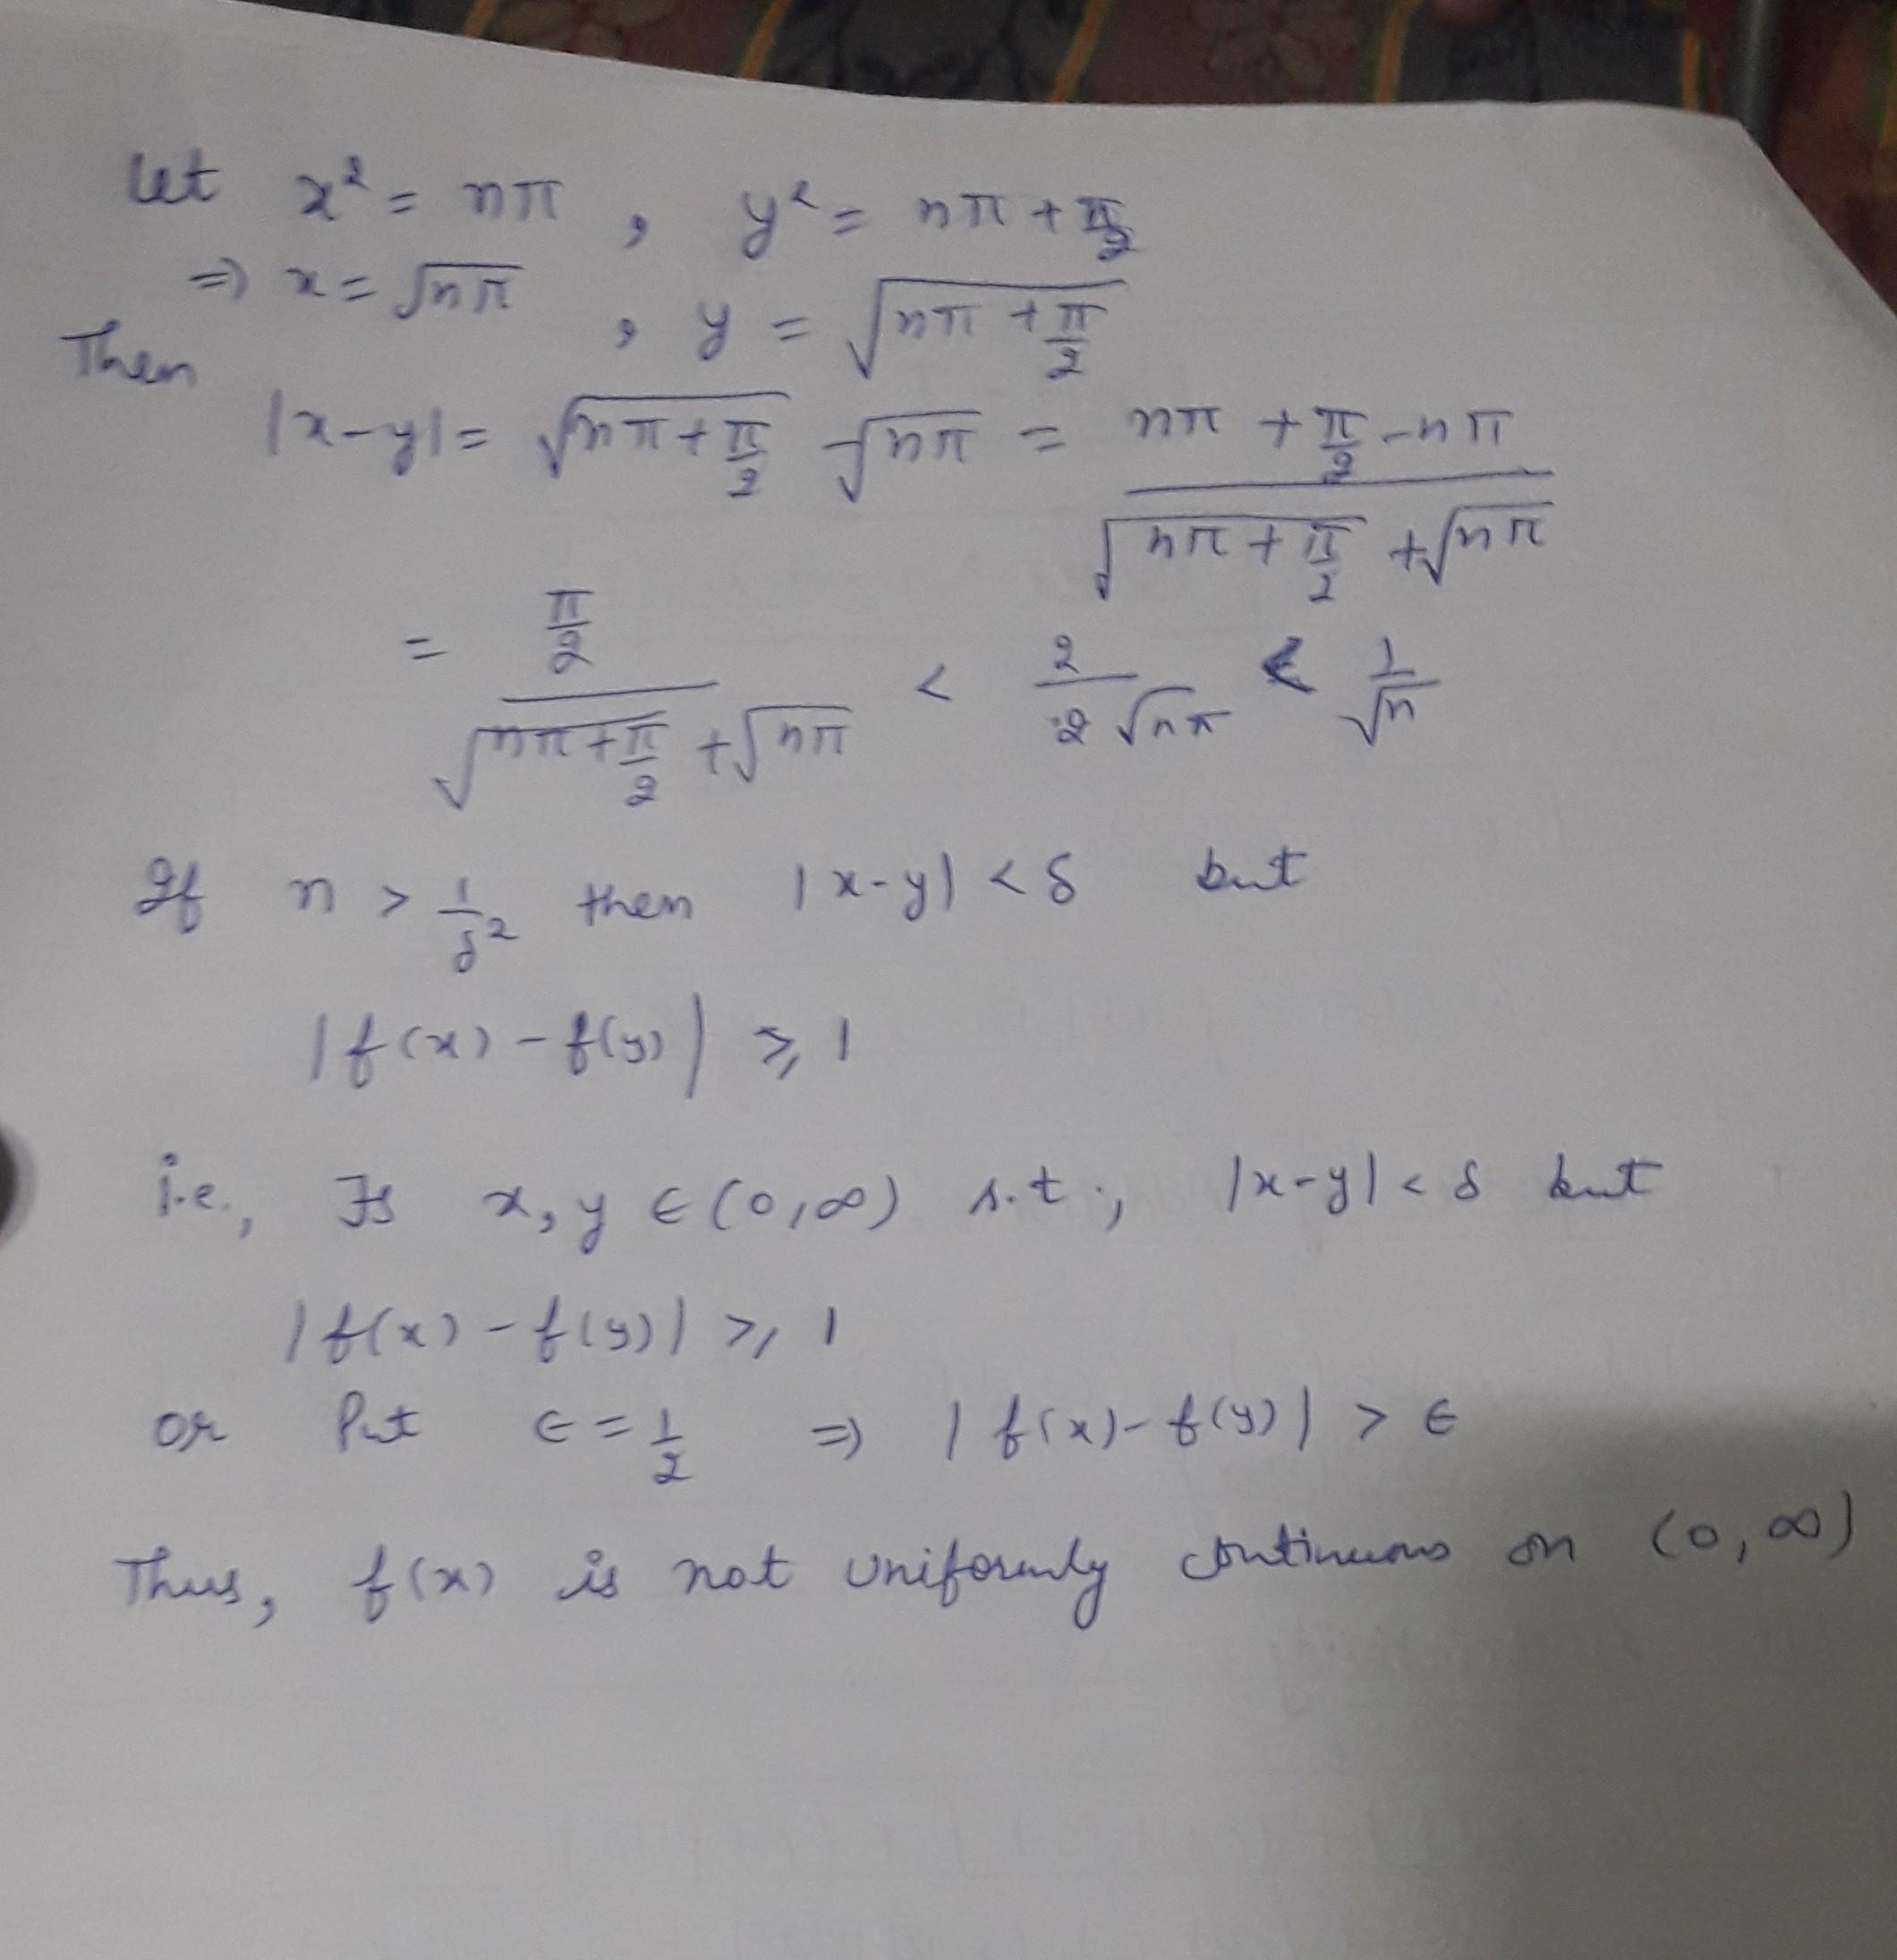 Let x² = nπ , y² = nπ + π/2
⇒ x = √nπ , y = √(nπ + π/2)
Then
|x-y| = √(nπ + π/2) - √nπ = (nπ + π/2 - nπ)/(√(nπ + π/2) + √nπ)
= (π/2)/(√(nπ + π/2) + √nπ) < 2/(2√nπ) < 1/√n
If n > 1/δ² then |x-y| < δ but
|f(x) - f(y)| ≥ 1
i.e., ∃s x, y ∈ (0, ∞) s.t., |x-y| < δ but
|f(x) - f(y)| ≥ 1
or Put ϵ = 1/2 ⇒ |f(x) - f(y)| > ϵ
Thus, f(x) is not uniformly continuous on (0, ∞)